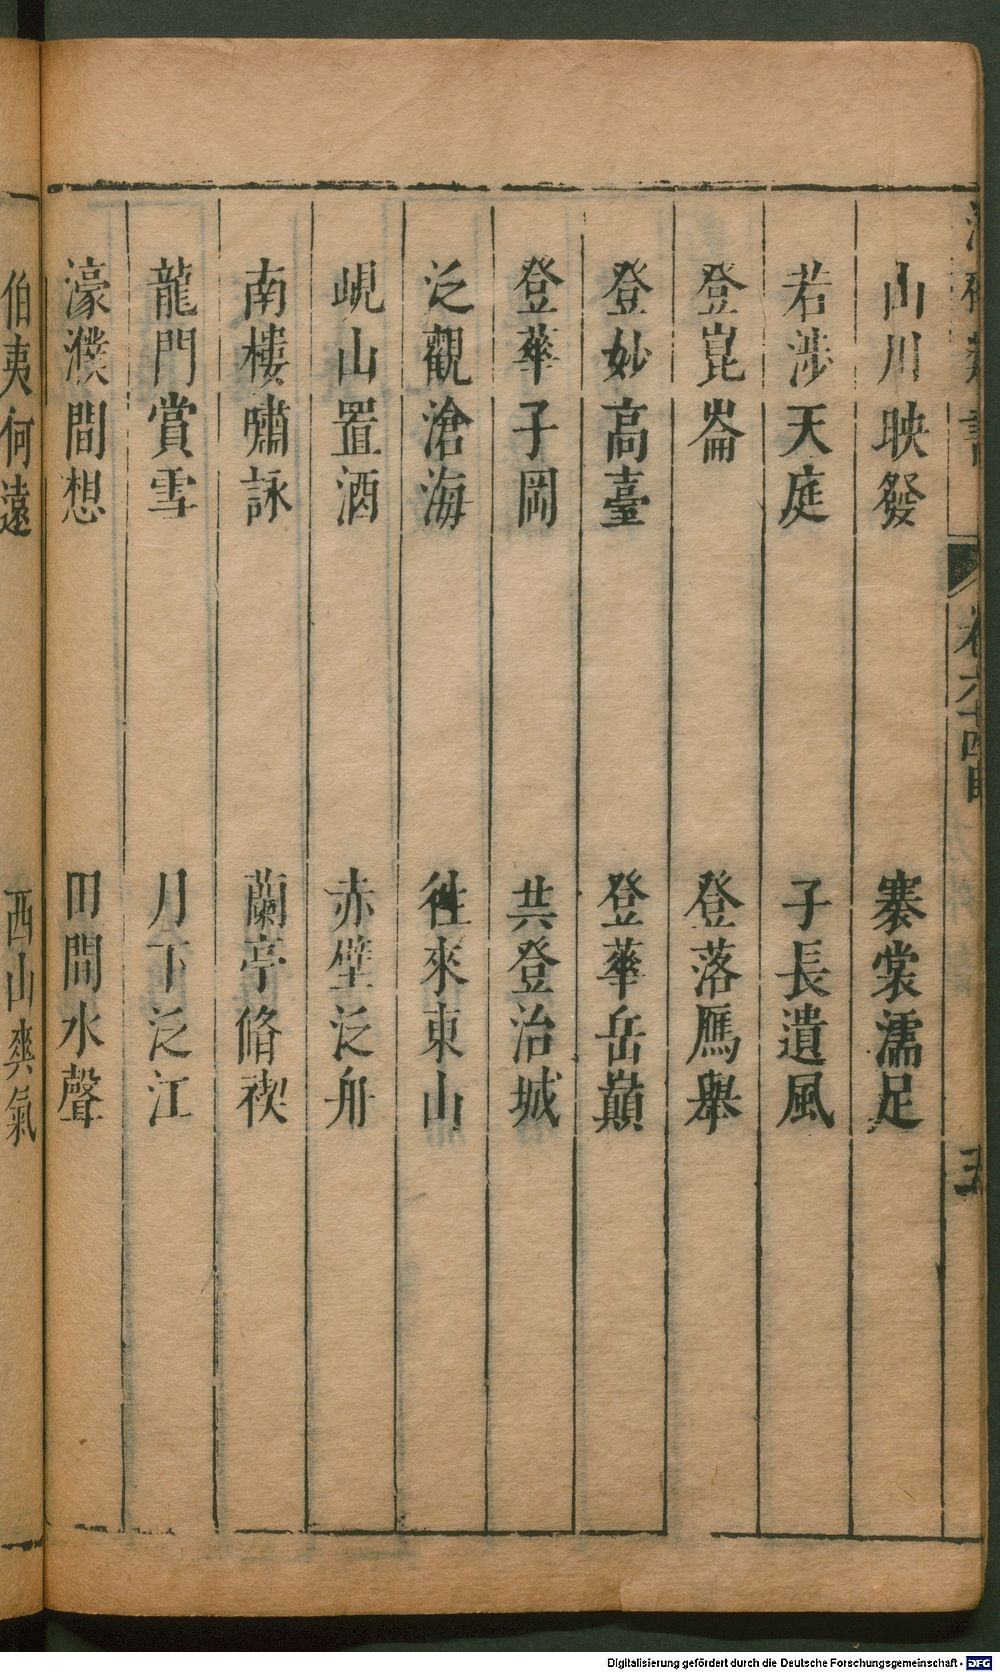 卷六十四目
五
山川映發　褰裳濡足
若涉天庭　子長遺風
登崑崙　登落鴈舉
登妙高臺　登華岳巔
登華子岡　共登治城
泛觀滄海　往來東山
峴山置酒　赤壁泛舟
南樓嘯詠　蘭亭脩禊
龍門賞雪　月下泛江
濠濮間想　田間水聲
伯夷何遠　西山爽氣
Digitalisierung gefördert durch die Deutsche Forschungsgemeinschaft - DFG